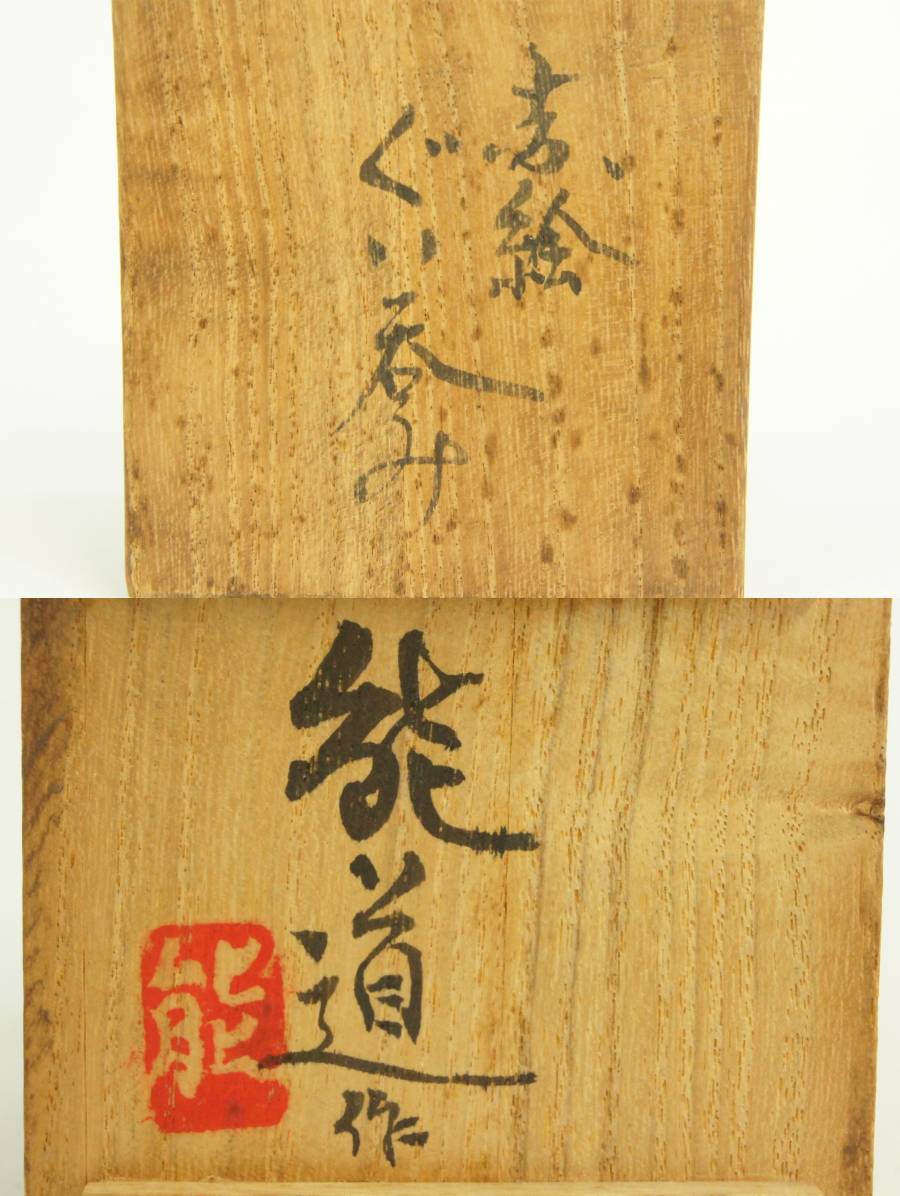 赤絵
ぐい呑み
能道作
能